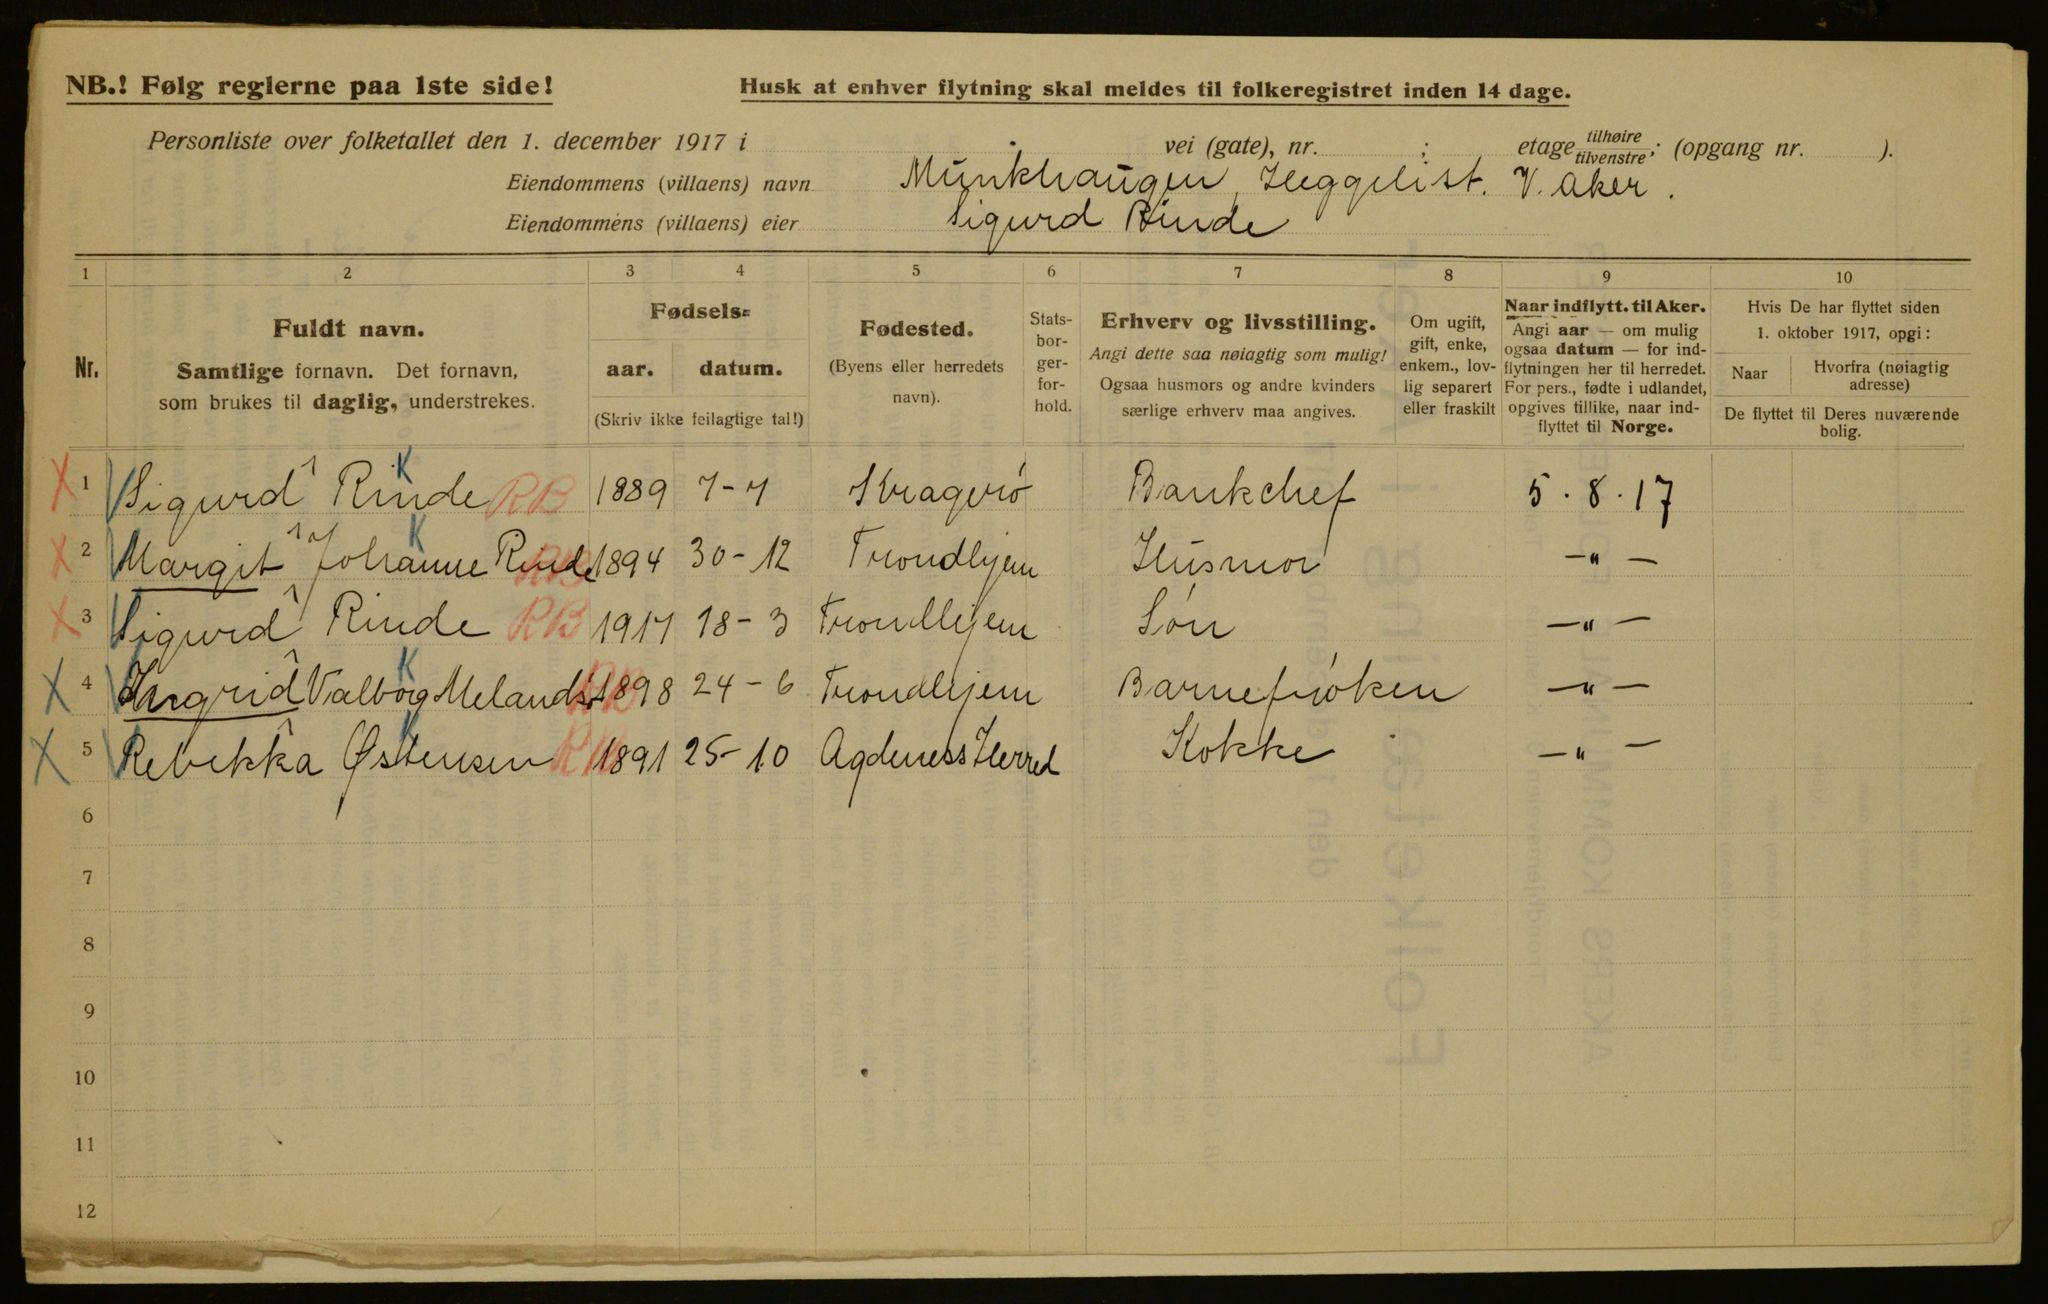 NB.! Følg reglerne paa 1ste side!
Husk at enhver flytning skal meldes til folkeregistret inden 14 dage.
Personliste over folketallet den 1. december 1917 i vei (gate), nr. ; etage tilhøire tilvenstre; (opgang nr. ).
Eiendommens (villaens) navn Munkhaugen, Heggelist. V. Aker.
Eiendommens (villaens) eier Sigurd Rinde
1 2 3 4 5 6 7 8 9 10
Nr.
Fuldt navn.
Samtlige fornavn. Det fornavn,
som brukes til daglig, understrekes.
Fødsels-
aar. datum.
(Skriv ikke feilagtige tal!)
Fødested.
(Byens eller herredets
navn).
Stats-
bor-
ger-
for-
hold.
Erhverv og livsstilling.
Angi dette saa nøiagtig som mulig!
Ogsaa husmors og andre kvinders
særlige erhverv maa angives.
Om ugift,
gift, enke,
enkem., lov-
lig separert
eller fraskilt
Naar indflytt. til Aker.
Angi aar — om mulig
ogsaa datum — for ind-
flytningen her til herredet.
For pers., fødte i udlandet,
opgives tillike, naar ind-
flyttet til Norge.
Hvis De har flyttet siden
1. oktober 1917, opgi:
Naar
Hvorfra (nøiagtig
adresse)
De flyttet til Deres nuværende
bolig.
X 1 Sigurd Rinde K RB 1889 7-7 Kragerö Bankchef 5.8.17
X 2 Margit Johanne Rinde K RB 1894 30-12 Trondhjem Husmor -"-
X 3 Sigurd Rinde RB 1917 18-3 Trondhjem Sön -"-
X 4 Ingrid Valborg Melandsö K RB 1898 24-6 Trondhjem Barnefröken -"-
X 5 Rebekka Østensen K 1891 25-10 Agdeness Herred Kokke -"-
6
7
8
9
10
11
12